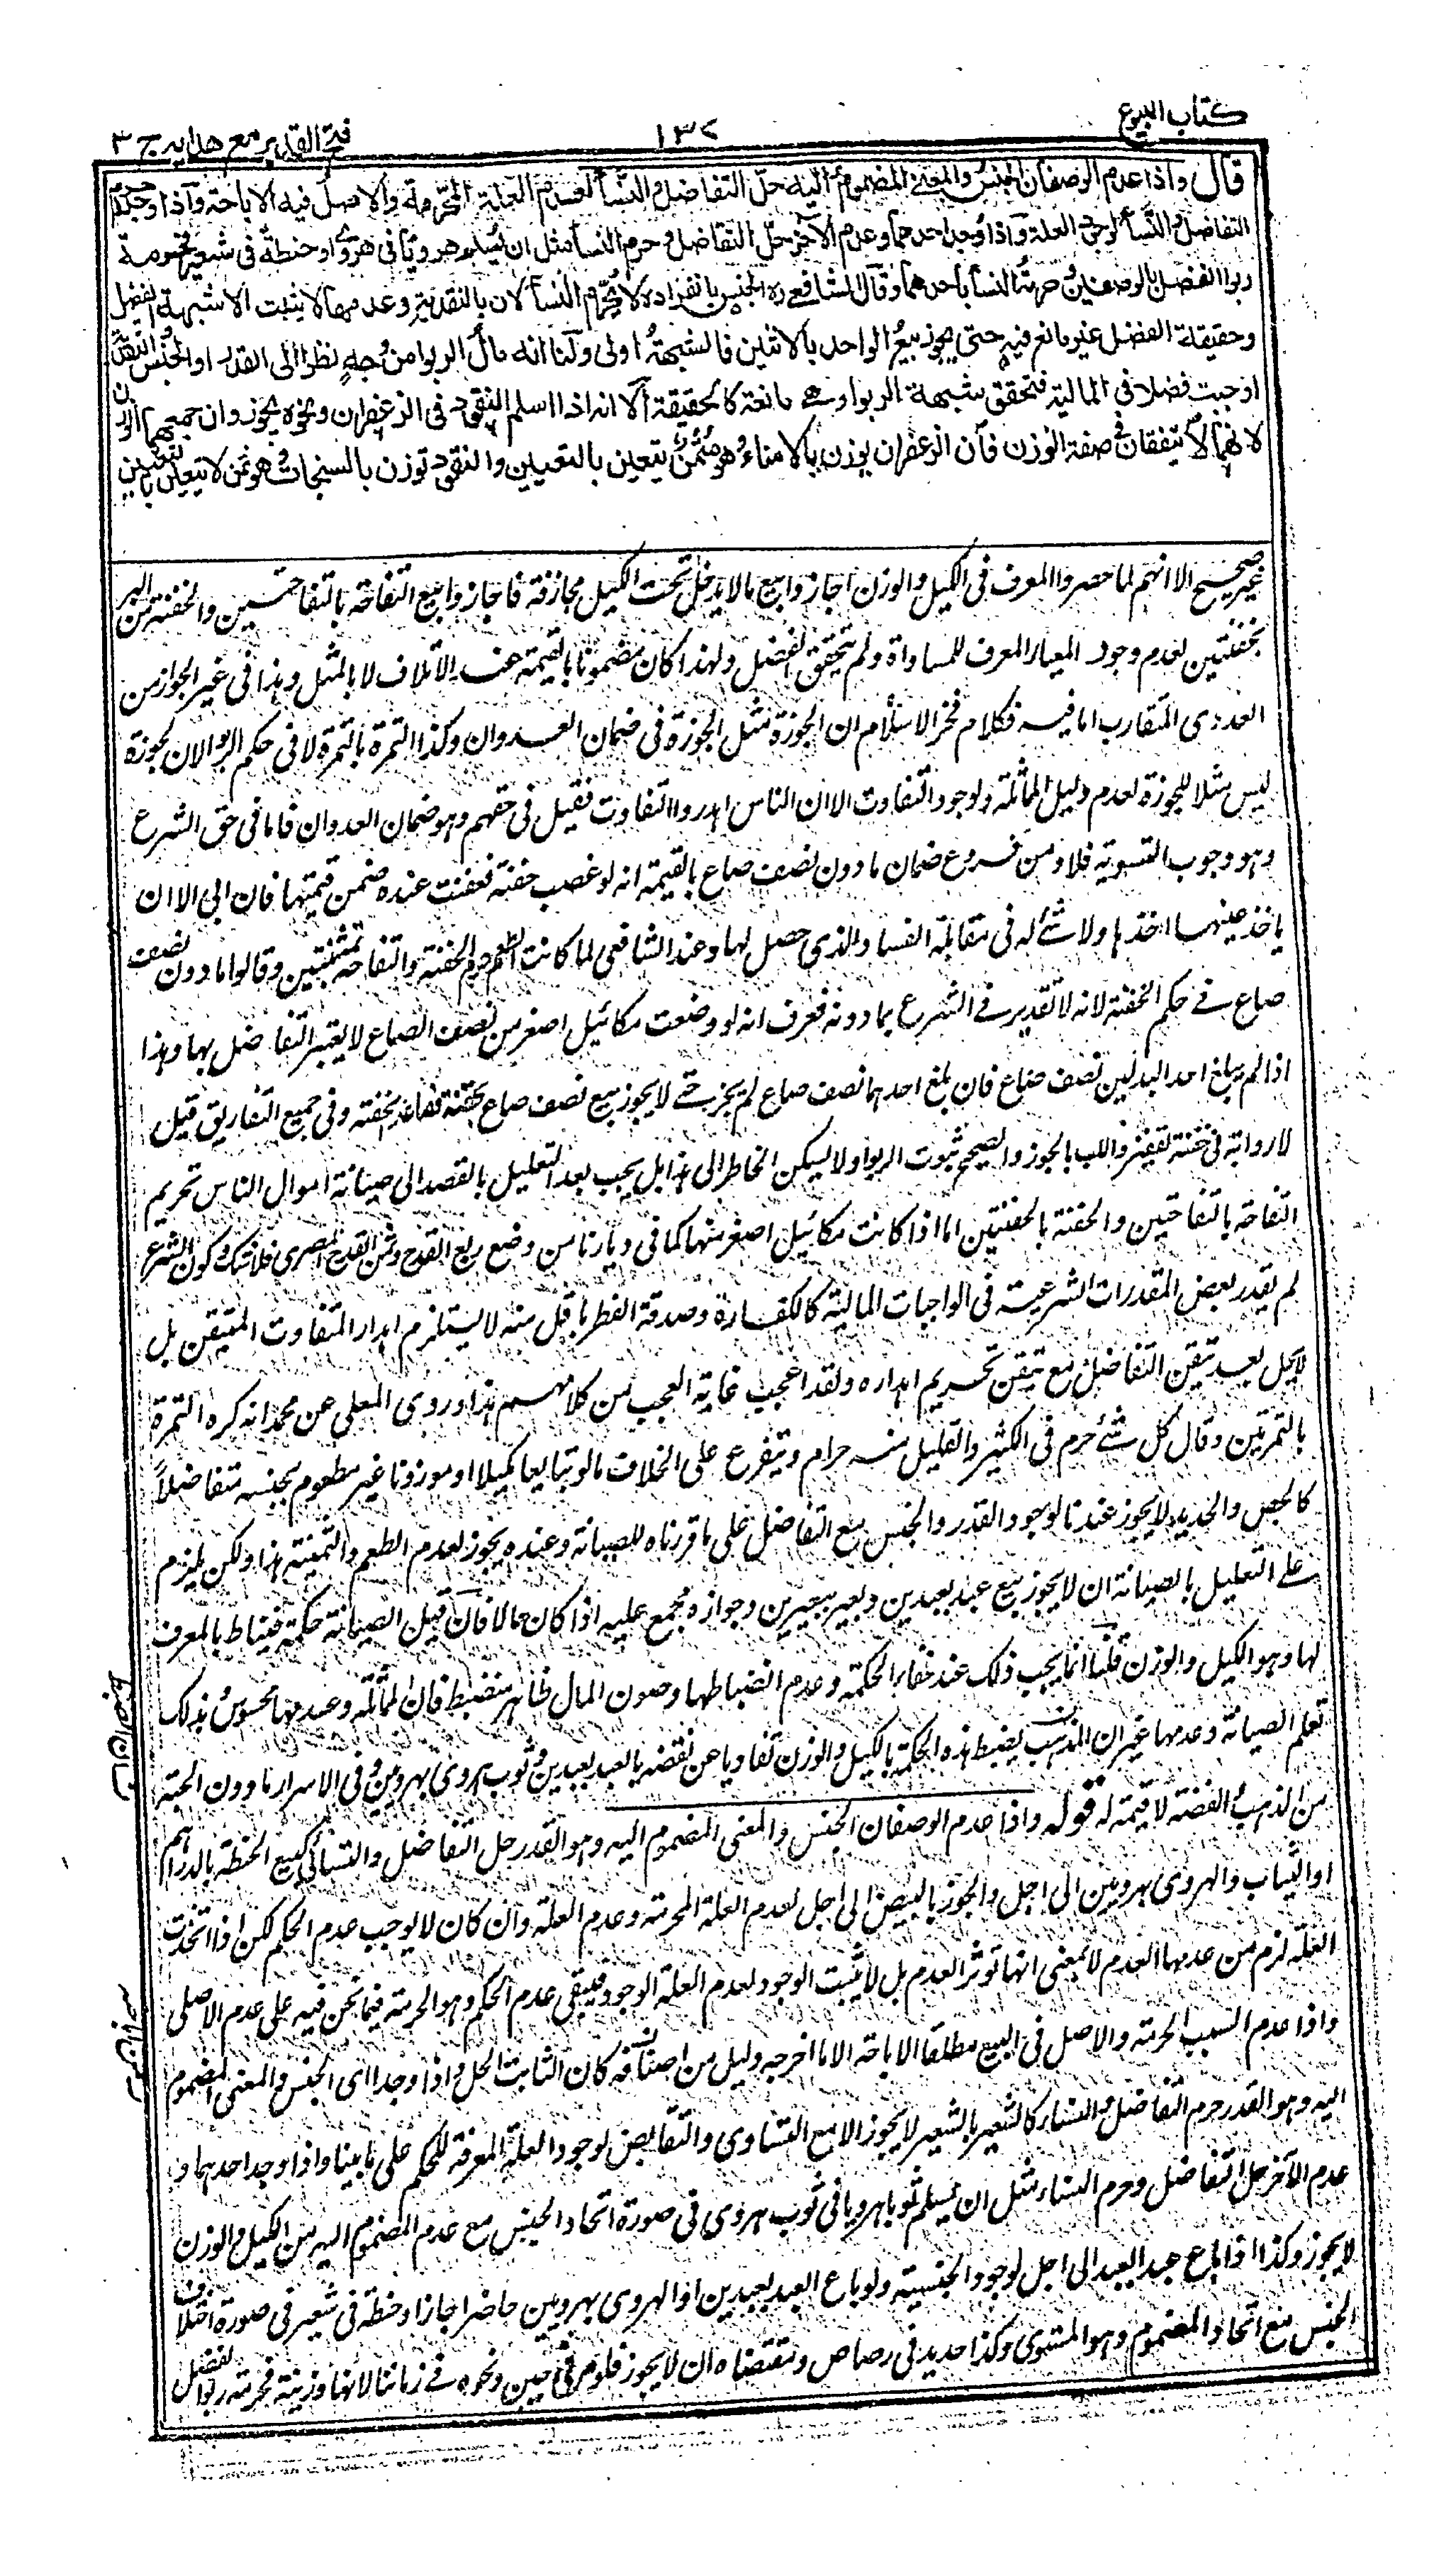 كتاب البيوع
١٣٢
فتح القدير مع هدايه ج ٣
قال واذا عدم الوصفان الجنس والمعنى المضموم اليه حل التفاضل والنسأ لعدم العلة المحرمة والاصل فيه الاباحة واذا وجدا حرم
التفاضل والنسأ لوجود العلة واذا وجد احدهما وعدم الآخر حل التفاضل وحرم النسأ مثل ان يسلم هرويا في هروي او حنطة في شعير فحرمة
ربوا الفضل بالوصفين وحرمة النسأ باحدهما وقال الشافعي ره الجنس بانفراده لا يحرم النسأ لان بالنقدية وعدمها لا يثبت الا شبهة الفضل
وحقيقة الفضل غير مانع فيه حتى يجوز بيع الواحد بالاثنين فالشبهة اولى ولنا انه مال الربوا من وجه نظرا الى القدر او الجنس والنقدية
اوجبت فضلا في المالية فتحقق شبهة الربوا وهي مانعة كالحقيقة الا انه اذا اسلم النقود في الزعفران ونحوه يجوز وان جمعهما الوزن
لانهما لا يتفقان في صفة الوزن فان الزعفران يوزن بالامناء وهو مثمن يتعين بالتعيين والنقود توزن بالسنجات وهو ثمن لا يتعين بالتعيين
غير صحيح الا انهم لما حصروا المعرف في الكيل والوزن اجازوا بيع ما لا يدخل تحت الكيل مجازفة فاجازوا بيع التفاحة بالتفاحتين والحفنة من البر
بحفنتين لعدم وجود المعيار المعرف للمساواة ولم يتحقق الفضل ولهذا كان مضمونا بالقيمة عند الاتلاف لا بالمثل وهذا في غير الجوز من
العددى المتقارب اما فيه فكلام فخر الاسلام ان الجوزة مثل الجوزة في ضمان العدوان وكذا التمرة بالتمرة لا في حكم الربوا لان الجوزة
ليس مثلا للجوزة لعدم دليل المماثلة ولوجود التفاوت الا ان الناس اهدروا التفاوت فقيل في حقهم وهو ضمان العدوان فاما في حق الشرع
وهو وجوب التسوية فلا ومن فروع ضمان ما دون نصف صاع بالقيمة انه لو غصب حفنة فعفنت عنده ضمن قيمتها فان ابى الا ان
ياخذ عينها اخذها ولا شئ له في مقابلة الفساد الذى حصل لها وعند الشافعى لما كانت الطعم حرم الحفنة والتفاحة بثنتين وقالوا ما دون نصف
صاع في حكم الحفنة لانه لا تقدير في الشرع بما دونه فعرف انه لو وضعت مكائيل اصغر من نصف الصاع لا يعتبر التفاضل بها وهذا
اذا لم يبلغ احد البدلين نصف صاع فان بلغ احدهما نصف صاع لم يجز حتى لا يجوز بيع نصف صاع بحفنة فصاعدا بحفنة وفى جميع التفاريق قيل
لا رواية في حفنة بقفيز واللب بالجوز والصحيح ثبوت الربوا ولا يسكن الخاطر الى هذا بل يجب بعد التعليل بالقصد الى صيانة اموال الناس تحريم
التفاحة بالتفاحتين والحفنة بالحفنتين اما اذا كانت مكائيل اصغر منها كما في ديارنا من وضع ربع القدح وثمن القدح المصرى فلا شك وكون الشرع
لم يقدر بعض المقدرات الشرعية في الواجبات المالية كالكفارة وصدقة الفطر باقل منه لا يستلزم اهدار التفاوت المتيقن بل
لا يحل بعد تيقن التفاضل مع تيقن تحريم اهداره ولقد اعجب غاية العجب من كلامهم هذا وروى المعلى عن محمد انه كره التمرة
بالتمرتين وقال كل شئ حرم في الكثير فالقليل منه حرام ويتفرع على الخلاف ما لو تبايعا كيلا او موزونا غير مطعوم بجنسه متفاضلا
كالجص والحديد لا يجوز عندنا لوجود القدر والجنس مع التفاضل على ما قررناه للصيانة وعنده يجوز لعدم الطعم والثمنية هذا ولكن يلزم
على التعليل بالصيانة ان لا يجوز بيع عبد بعبدين وبعير ببعيرين وجوازه مجمع عليه اذا كان حالا فان قيل الصيانة حكمة فيناط بالمعرف
لها وهو الكيل والوزن قلنا انما يجب ذلك عند خفاء الحكمة وعدم انضباطها وصون المال ظاهر منضبط فان المماثلة وعدمها محسوس وبذلك
تعلم الصيانة وعدمها غير ان المذهب يضبط هذه الحكمة بالكيل والوزن تفاديا عن نقضه بالعبد بعبدين وثوب هروى بهرويين وفى الاسرار ما دون الحبة
من الذهب والفضة لا قيمة له قوله واذا عدم الوصفان الجنس والمعنى المضموم اليه وهو القدر حل التفاضل والنسأ كبيع الحنطة بالدراهم
او الثياب والهروى بهرويين الى اجل والجوز بالبيض الى اجل لعدم العلة المحرمة وعدم العلة وان كان لا يوجب عدم الحكم لكن اذا اتحدت
العلة لزم من عدمها العدم لا بمعنى انها تؤثر العدم بل لا يثبت الوجود لعدم العلة الوجود فيبقى عدم الحكم وهو الحرمة فيما نحن فيه على عدم الاصلى
واذا عدم السبب الحرمة والاصل في البيع مطلقا الاباحة الا ما اخرجه دليل من اصنافه كان الثابت الحل واذا وجدا اى الجنس والمعنى المضموم
اليه وهو القدر حرم التفاضل والنساء كالشعير بالشعير لا يجوز الا مع التساوى والتقابض لوجود العلة المعرفة للحكم على ما بينا واذا وجد احدهما و
عدم الآخر حل التفاضل وحرم النساء مثل ان يسلم ثوبا هرويا في ثوب هروى في صورة اتحاد الجنس مع عدم المضموم اليه من الكيل والوزن
لا يجوز وكذا اذا باع عبدا لعبد الى اجل لوجود الجنسية ولو باع العبد بعبدين او الهروى بهرويين حاضرا جاز او حنطة في شعير في صورة اختلاف
الجنس مع اتحاد المضموم وهو المستوى وكذا حديد في رصاص ومقتضاه ان لا يجوز فلوس في خبز ونحوه في زماننا لانها وزنية فحرمة ربوا الفضل